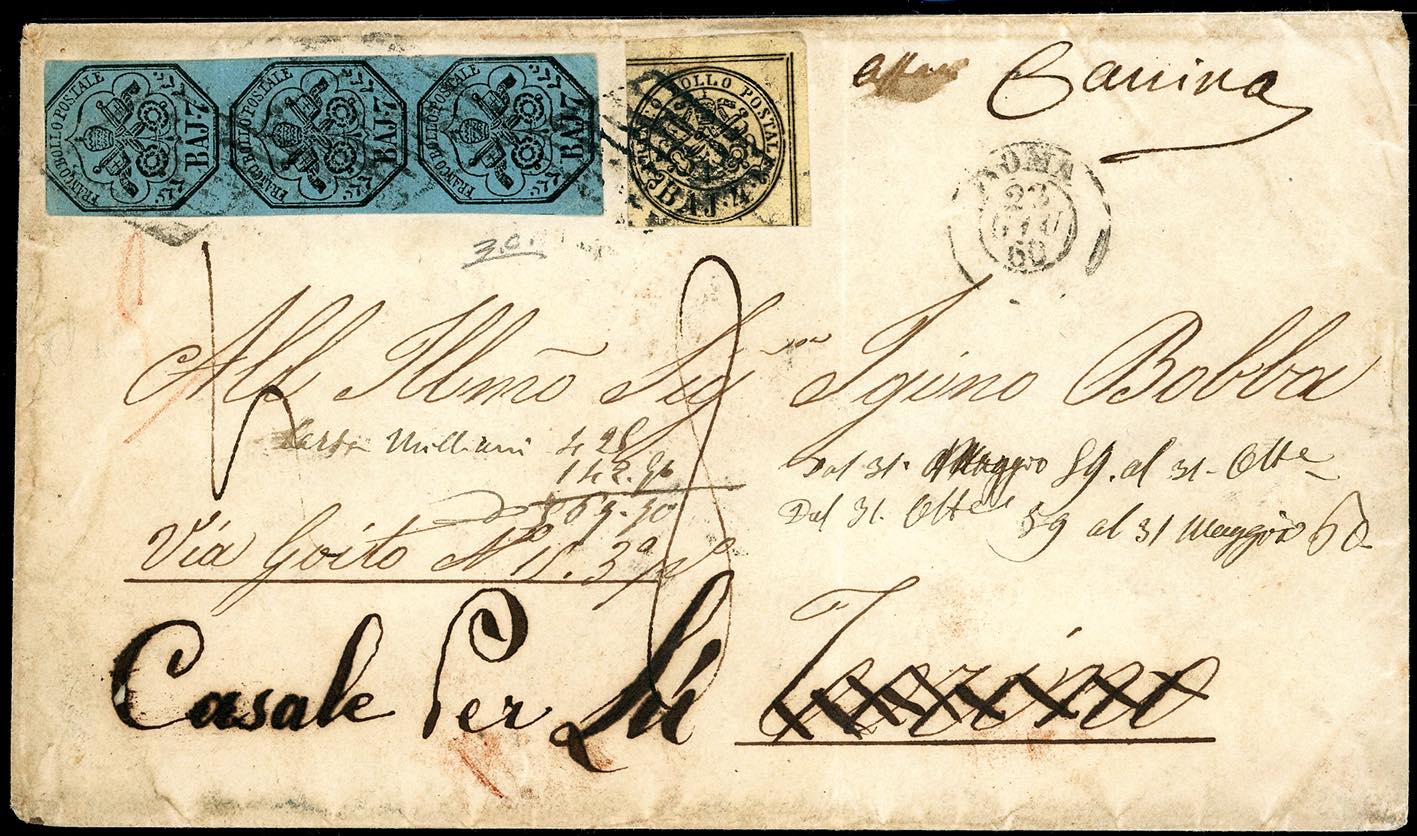 FRANCO BOLLO POSTALE BAJ·7
FRANCO BOLLO POSTALE BAJ·7
FRANCO BOLLO POSTALE BAJ·7
BOLLO POSTALE BAJ·4
ROMA
23
GIU
60
All Illmõ Sig Igino Bobba
Milliani 4 28
Dal 31. Maggio 59. al 31. Otte
Dal 31. Otte 59 al 31 Maggio 60
Via Goito Nº 15. 3º pº
Casale Per Lú Torino